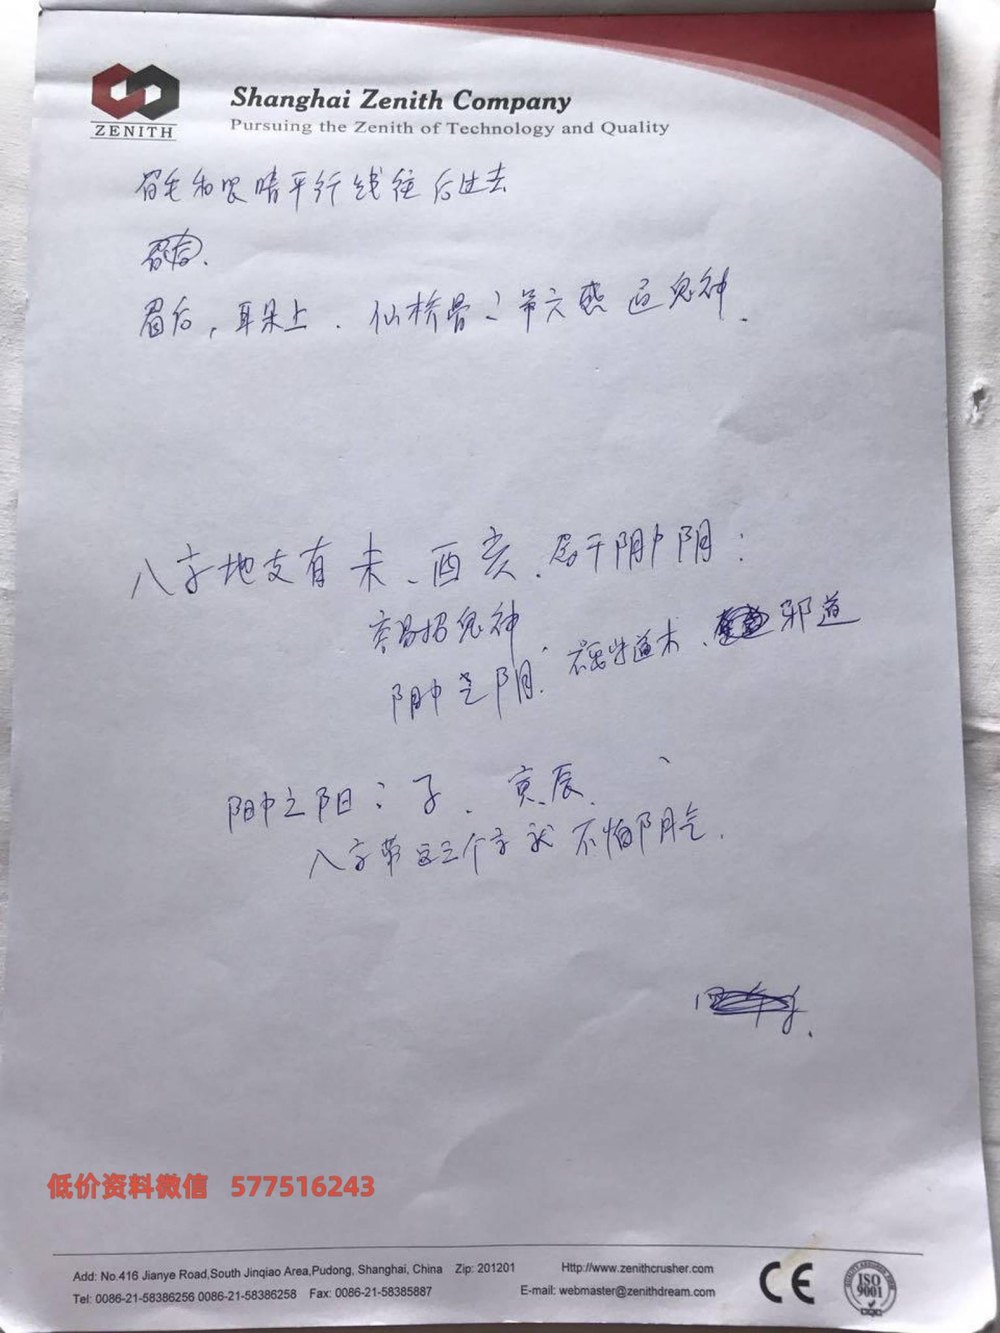 ZENITH
Shanghai Zenith Company
Pursuing the Zenith of Technology and Quality
眉毛和眼睛平行线往后过去
眉后，耳朵上．仙桥骨：第六感 通鬼神．
八字地支有未、酉亥．属于阴中阴：
容易招鬼神
阴中之阴： 道术、邪道
阳中之阳：子．寅．辰．
八字带这三个字就不怕阴气．
低价资料微信 577516243
Add: No.416 Jianye Road,South Jinqiao Area,Pudong, Shanghai, China Zip: 201201 Http://www.zenithcrusher.com
Tel: 0086-21-58386256 0086-21-58386258 Fax: 0086-21-58385887 E-mail: webmaster@zenithdream.com
CE
QUALITY ASSURED FIRM
ISO
9001